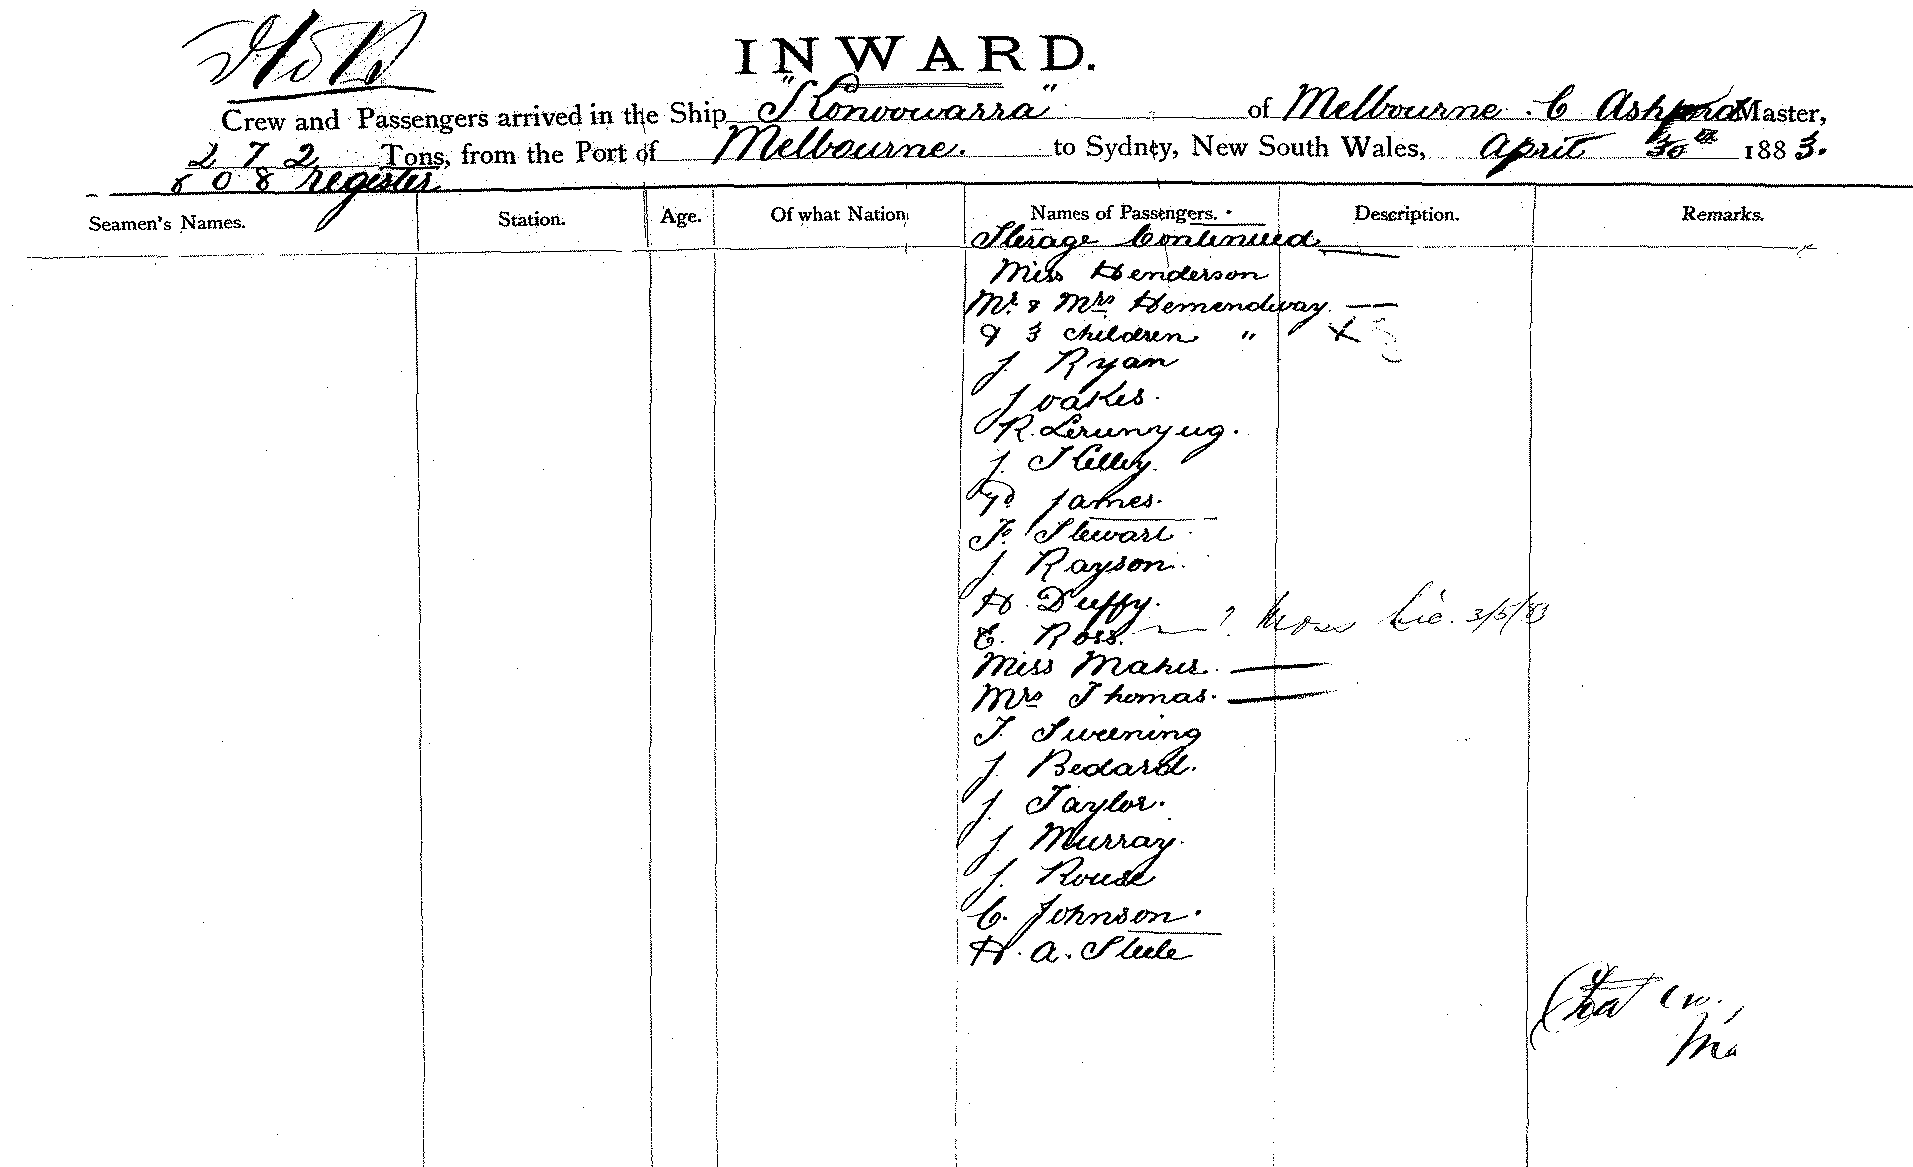 INWARD.
Crew and Passengers arrived in the Ship "Konoowarra" of Melbourne. C Ashford Master,
272 Tons, from the Port of Melbourne. to Sydney, New South Wales, April 30th 1883.
808 register
Seamen's Names. Station. Age. Of what Nation Names of Passengers. Description. Remarks.
Sterage Continued
Miss Henderson
Mr. & Mrs Hemendway
& 3 children "
J. Ryan
J Oakes.
R.
J. Kelley.
James.
Stewart
J. Rayson.
H. Duffy.
C. Ross. ? 3/5/83
Miss Maher.
Mrs Thomas.
T. Sweening
J. Bedard.
J. Taylor.
J. Murray.
J. Rouse
C. Johnson.
H. A. Steele